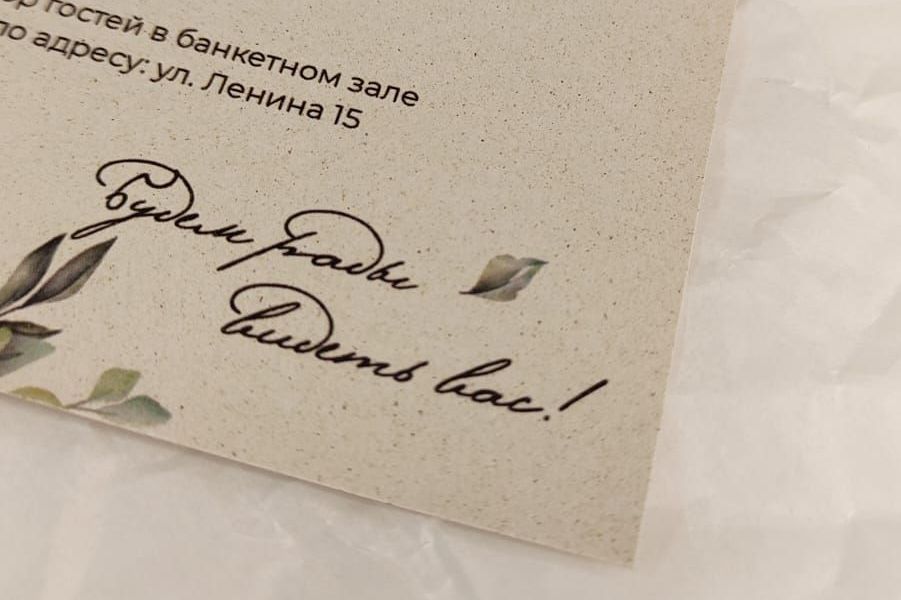 гостей в банкетном зале
по адресу: ул. Ленина 15
Будем рады
видеть вас!